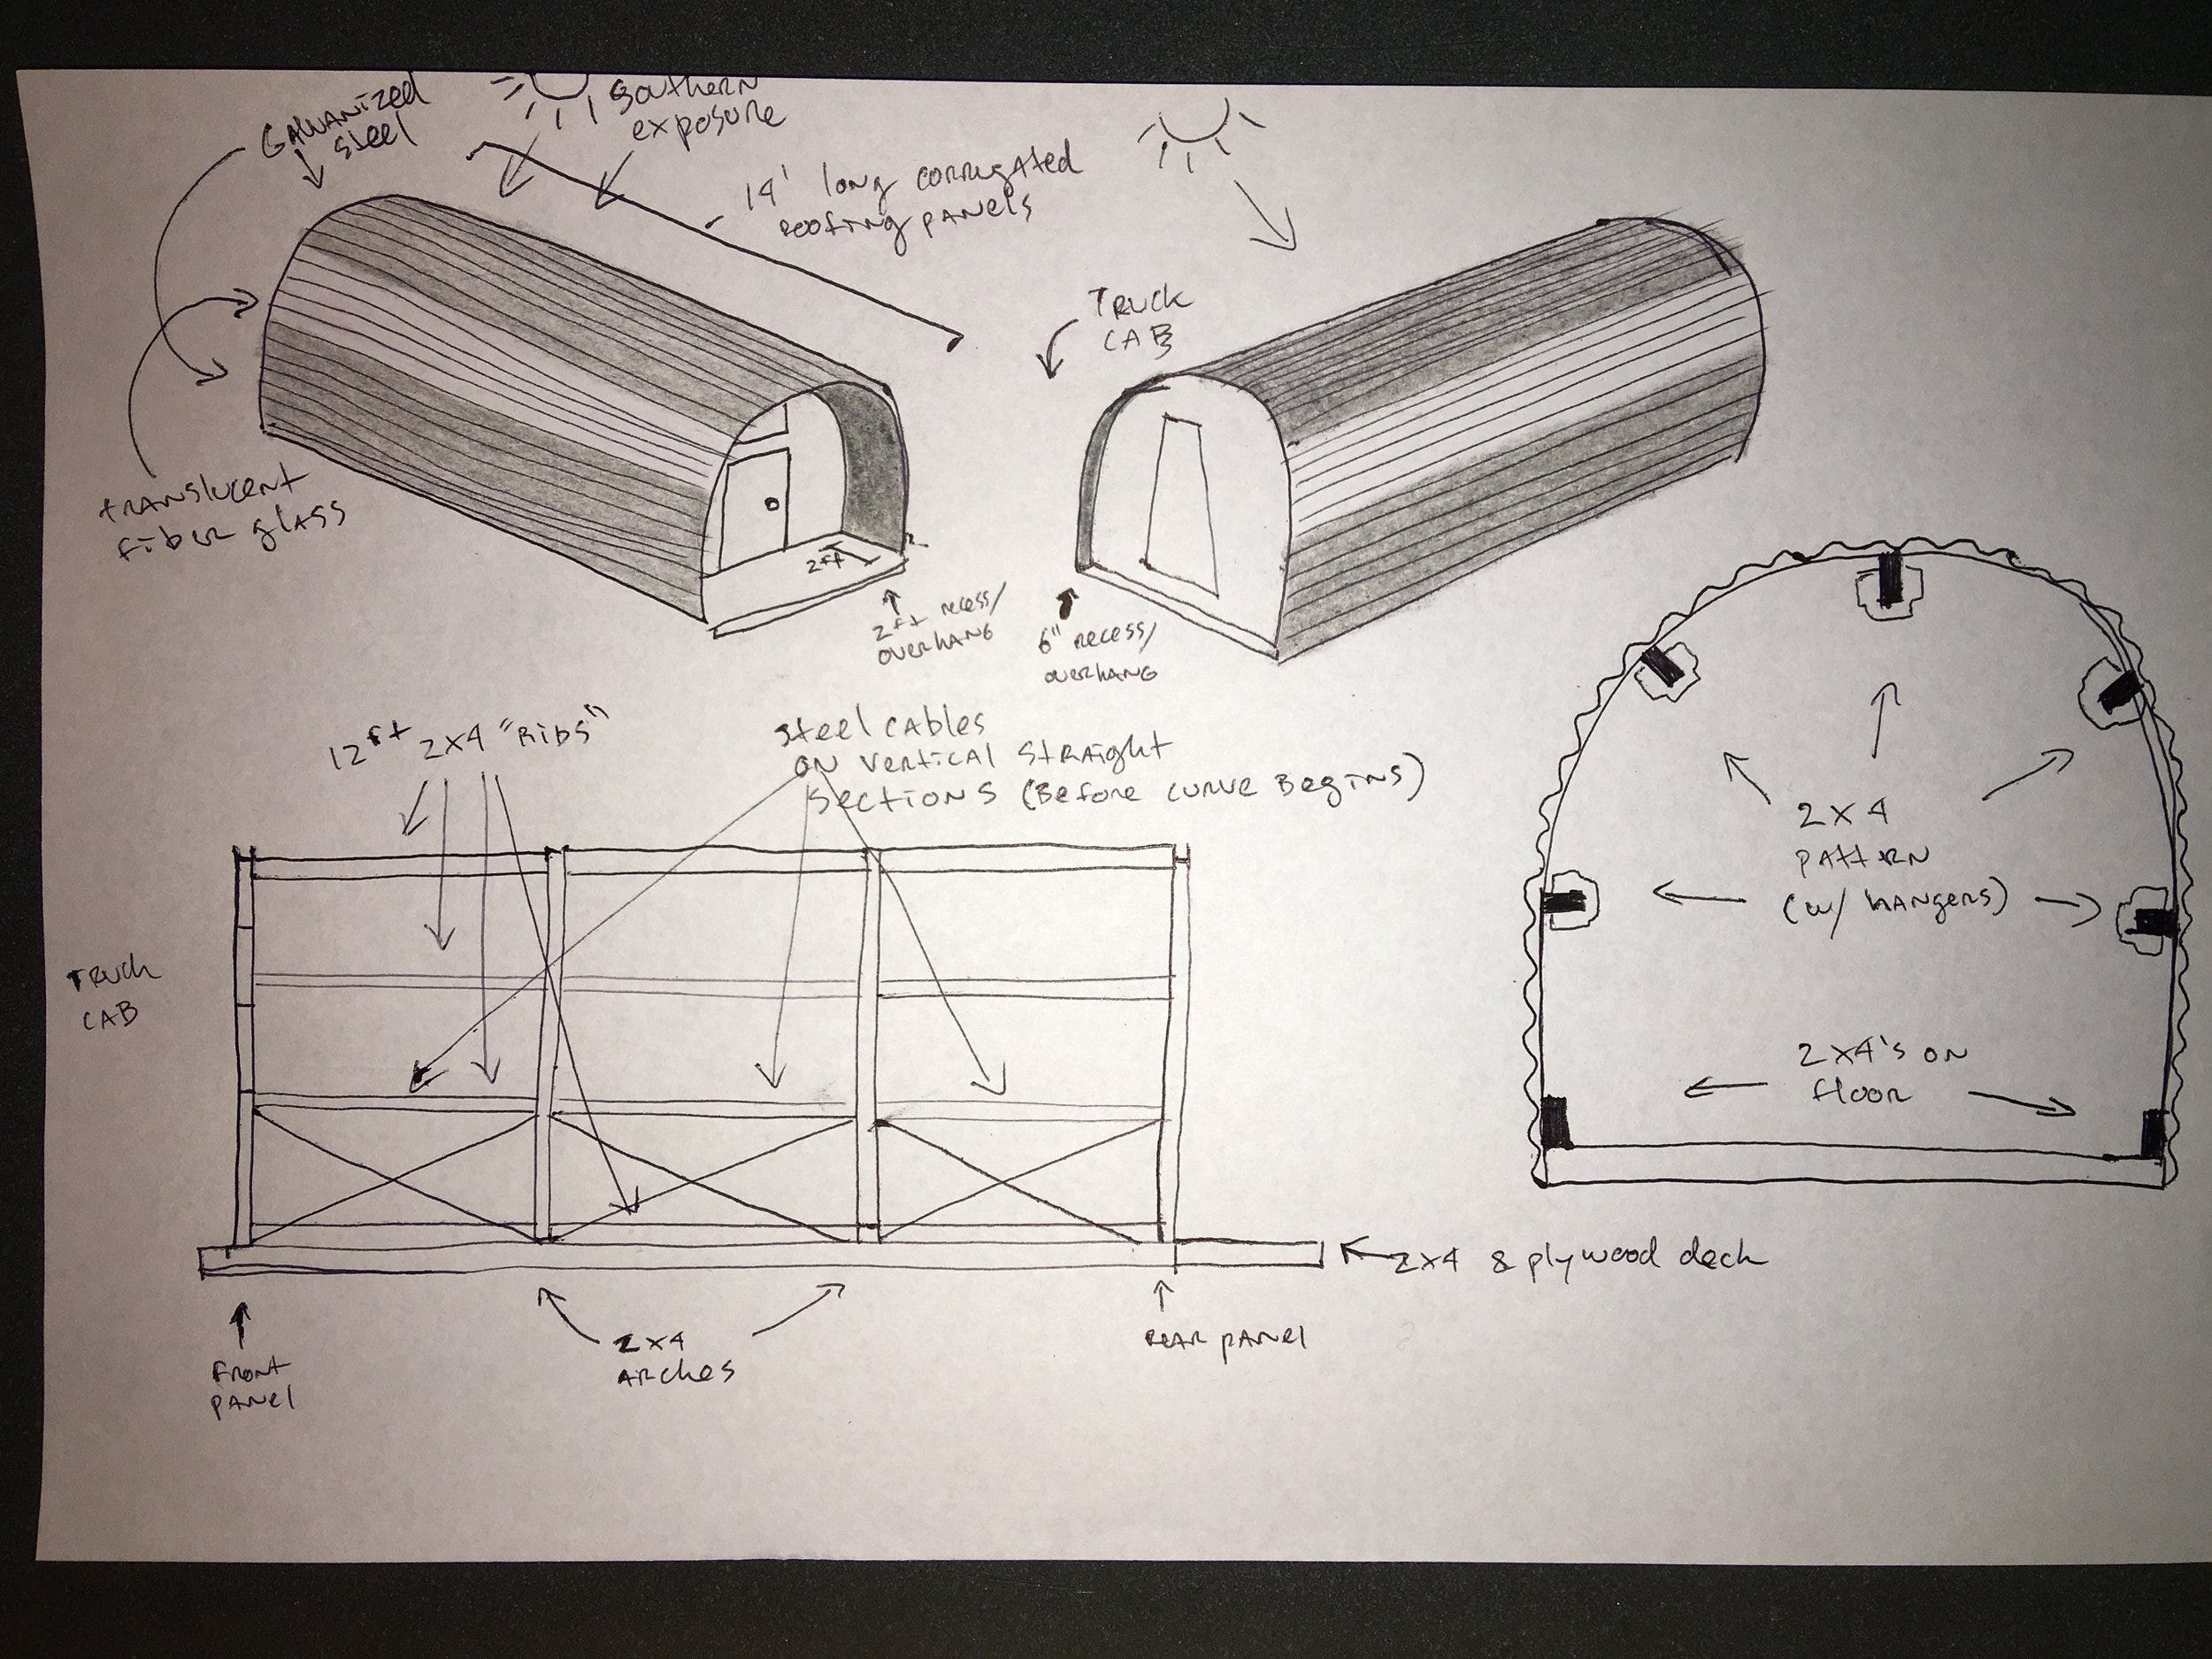 GALVANIZED
steel
Southern
exposure
14' long corrugated
roofing panels
TRUCK
CAB
translucent
fiber glass
2ft
2ft recess/
overhang
6" recess/
overhang
12ft 2x4 "Ribs"
Steel cables
on vertical straight
sections (Before curve Begins)
2x4
pattern
(w/ hangers)
2x4's on
floor
TRUCK
CAB
2x4 & plywood deck
2x4
Arches
Rear panel
Front
panel